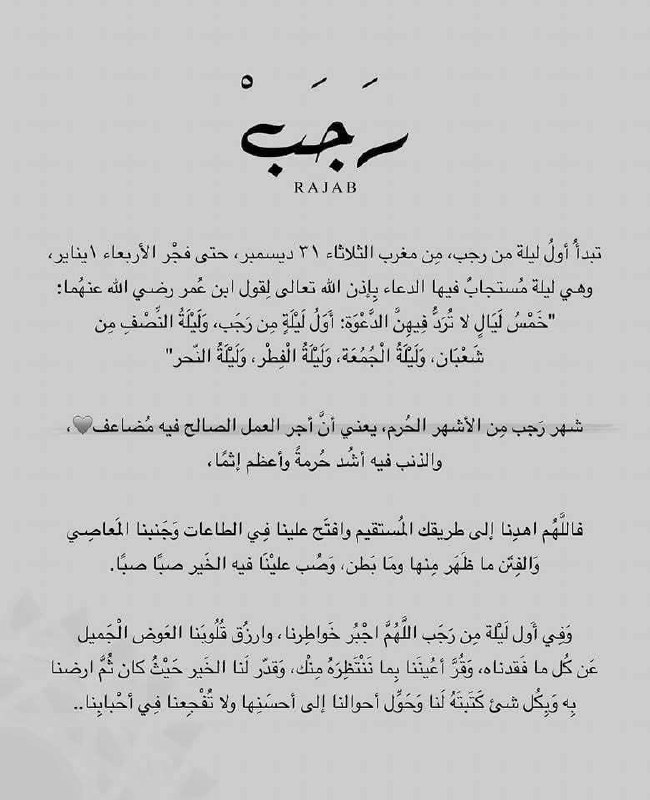 رَجَبْ
RAJAB
تبدأُ أولُ ليلة من رجب، مِن مغرب الثلاثاء ٣١ ديسمبر، حتى فجْر الأربعاء ١يناير،
وهي ليلة مُستجابٌ فيها الدعاء بِإذن الله تعالى لِقول ابن عُمر رضي الله عنهُما:
"خَمْسُ لَيَالٍ لا تُرَدُّ فِيهِنَّ الدَّعْوَة: أوَلُ لَيْلَةٍ مِن رَجَب، وَلَيْلَةُ النِّصْفِ مِن
شَعْبَان، وَلَيْلَةُ الْجُمُعَة، وَلَيْلَةُ الْفِطْر، وَلَيْلَةُ النّحر"
شهر رَجب مِن الأشهر الحُرم، يعني أنَّ أجر العمل الصالح فيه مُضاعف🩶،
والذنب فيه أشُد حُرمةً وأعظم إثمًا،
فاللَّهُم اهدِنا إلى طريقك المُستقيم وافتَح علينا فِي الطاعات وَجَنبنا المَعاصِي
وَالفِتَن ما ظَهَر مِنها ومَا بَطن، وَصُب عليْنَا فيه الخَير صبًا صبًا.
وَفِي أَول لَيْلة مِن رَجَب اللَّهُمَّ اجْبُر خَواطِرنا، وارزُق قُلُوبَنا العَوض الْجَميل
عَن كُل ما فَقدناه، وَقُرَّ أعيُنَنا بِما نَنْتَظِرَهُ مِنْك، وَقدّر لَنا الخَير حَيْثُ كان ثُمَّ ارضنا
بِه وَبِكُل شئ كَتَبتَهُ لَنا وَحَوِّل أحوالنا إلى أحسَنِها ولا تُفْجِعنا فِي أحْبابِنا..